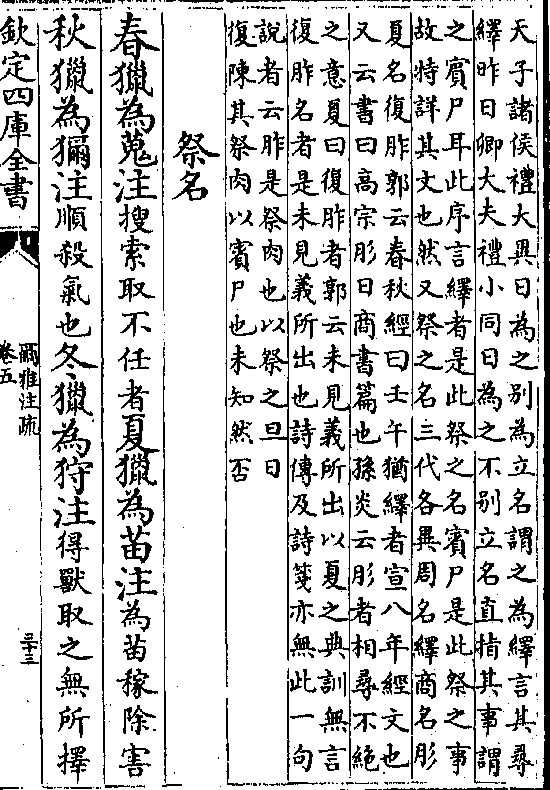 天子諸侯禮大異日為之别為立名謂之為繹言其尋
繹昨日卿大夫禮小同日為之不别立名直指其事謂
之賓尸耳此序言繹者是此祭之名賓尸是此祭之事
故特詳其文也然又祭之名三代各異周名繹商名肜
夏名復胙郭云春秋經曰壬午猶繹者宣八年經文也
又云書曰高宗肜日商書篇也孫炎云肜者相尋不絶
之意夏曰復胙者郭云未見義所出以夏之典訓無言
復胙名者是未見義所出也詩傳及詩箋亦無此一句
說者云胙是祭肉也以祭之旦日
復陳其祭肉以賓尸也未知然否
祭名
春獵為蒐注搜索取不任者夏獵為苗注為苗稼除害
秋獵為獮注順殺氣也冬獵為狩注得獸取之無所擇
欽定四庫全書
爾雅注疏
卷五
三十三